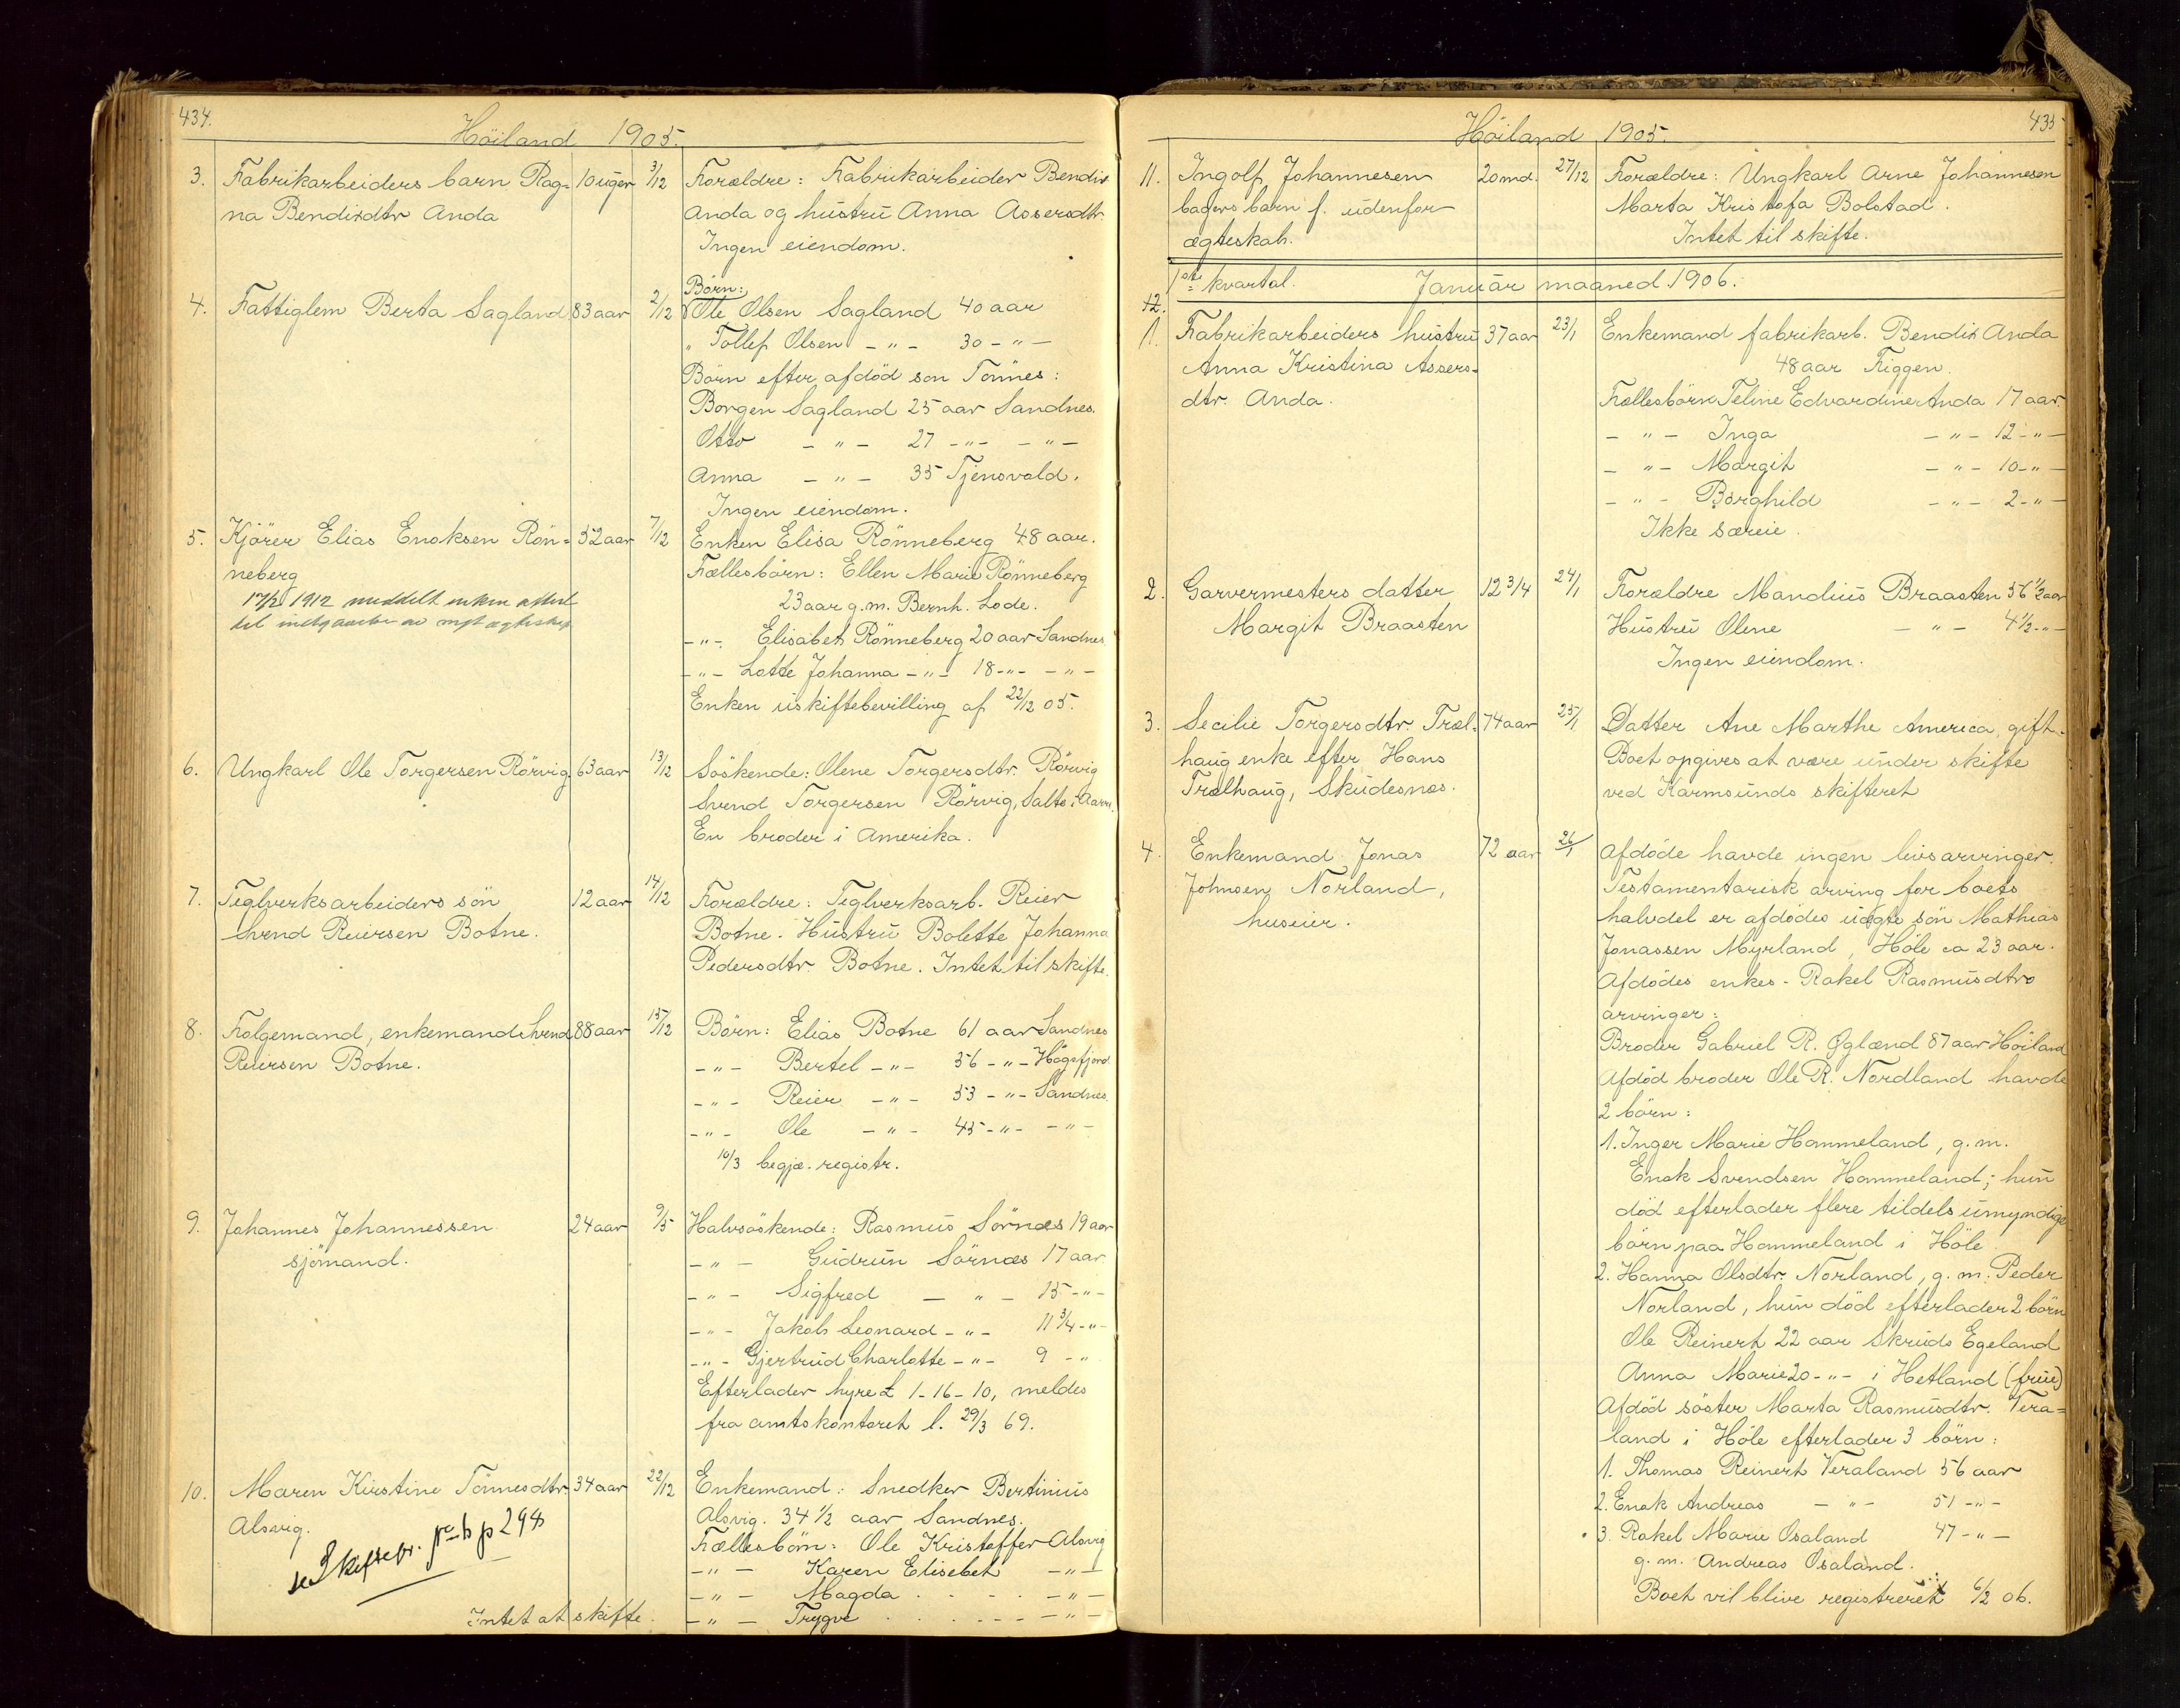 434.
Höiland 1905.
3. Fabrikarbeiders barn Rag= 10 uger 3/12 Forældre: Fabrikarbeider Bendix
na Bendixdtr Anda Anda og hustru Anna Assersdtr.
Ingen eiendom.
Börn:
4. Fattiglem Berta Sagland 83 aar 2/12 Ole Olsen Sagland 40 aar
„ Tollef Olsen - „ - 30 - „ -
Börn efter afdöd sön Tönnes:
Borgen Sagland 25 aar Sandnes.
Otto - „ - 27 - „ - - „ -
Anna - „ - 35 Tjensvold.
Ingen eiendom.
5. Kjörer Elias Enoksen Rön= 52 aar 7/12 Enken Elisa Rönneberg 48 aar.
neberg Fællesbörn: Ellen Marie Rönneberg
17/2 1912 meddelt enken attest 23 aar g.m. Bernh. Lode.
til indgaaelse av nyt ægteskap
- „ - Elisabet Rönneberg 20 aar Sandnes
- „ - Lotte Johanna - „ - 18 - „ - - „ -
Enken uskiftebevilling af 22/12 05.
6. Ungkarl Ole Torgersen Rörvig. 63 aar 13/12 Söskende: Olene Torgersdtr. Rörvig
Svend Torgersen Rörvig, Salte i
En broder i Amerika.
7. Teglverksarbeiders sön 12 aar 14/12 Forældre: Teglverksarb. Reier
Svend Reiersen Botne. Botne. Hustru Bolette Johanna
Pedersdtr. Botne. Intet til skifte.
8. Folgemand, enkemand Svend 88 aar 15/12 Börn: Elias Botne 61 aar Sandnes
Reiersen Botne. - „ - Bertel - „ - 56 - „ - Högsfjord
- „ - Reier - „ - 53 - „ - Sandnes.
- „ - Ole - „ - 45 - „ - - „ -
10/3 begjæ. registr.
9. Johannes Johannessen 24 aar 9/5 Halvsöskende: Rasmus Sörnæs 19 aar
sjömand. - „ - Gudrun Sörnæs 17 aar
- „ - Sigfred - „ - 15 - „ -
- „ - Jakob Leonard - „ - 11 3/4 - „ -
- „ - Gjertrud Charlotte - „ - 9 - „
Efterlader hyre £ 1-16-10, meldes
fra amtskontoret l. 29/3 69.
10. Maren Kirstine Tönnesdtr. 34 aar 22/12 Enkemand: Snedker Bertinius
Alsvig. Alsvig. 34 1/2 aar Sandnes.
se Skiftepr. p 298
Fællesbörn: Ole Kristoffer Alsvig
- „ - Karen Elisebet - „ -
- „ - Magda - „ -
Intet at skifte. - „ - Trygve - „ -
435
Höiland 1905.
11. Ingolf Johannesen 20 md. 27/12 Forældre: Ungkarl Arne Johannesen
bagers barn f. udenfor Marta Kristofa Bolstad.
ægteskab. Intet til skifte.
1ste kvartal. Januar maaned 1906.
12.
1. Fabrikarbeiders hustru 37 aar 23/1 Enkemand fabrikarb. Bendix Anda
Anna Kristina Assers- 48 aar Figgen.
dtr. Anda. Fællesbörn Teline Edvardine Anda 17 aar.
- „ - Inga - „ - 12 - „ -
- „ - Margit - „ - 10 - „ -
- „ - Borghild - „ - 2 - „ -
Ikke særeie.
2. Garvermesters datter 12 3/4 24/1 Forældre Mandius Braasten 56 1/2 aar
Margit Braasten Hustru Olene - „ - 4 1/2 - „ -
Ingen eiendom.
3. Secilie Torgersdtr. Træl- 74 aar 25/1 Datter Ane Marthe America, gift.
haug enke efter Hans Boet opgives at være under skifte
Trælhaug, Skudesnæs. ved Karmsunds skifteret
4. Enkemand Jonas 72 aar 26/1 Afdöde havde ingen livsarvinger.
Johnsen Norland, Testamentarisk arving for boets
huseier. halvdel er afdödes uægte sön Mathias
Jonassen Myrland, Höle ca 23 aar.
Afdödes enkes - Rakel Rasmusdtrs
arvinger:
Broder Gabriel R. Øglænd 87 aar Höiland
Afdöd broder Ole R. Nordland havde
2 börn:
1. Inger Marie Hommeland, g.m.
Enok Svendsen Hommeland; hun
död efterlader flere tildels umyndige
börn paa Hommeland i Höle.
2. Hanna Olsdtr. Norland, g.m. Peder
Norland, hun död efterlader 2 börn
Ole Reinert 22 aar Skruds Egeland
Anna Marie 20 - „ - i Hetland (frue)
Afdöd söster Marta Rasmusdtr. Vera=
land i Höle efterlader 3 börn:
1. Thomas Reinert Veraland 56 aar
2. Enok Andreas - „ - 51 - „ -
3. Rakel Marie Osaland 47 - „ -
g.m. Andreas Osaland.
Boet vil blive registreret 6/2 06.